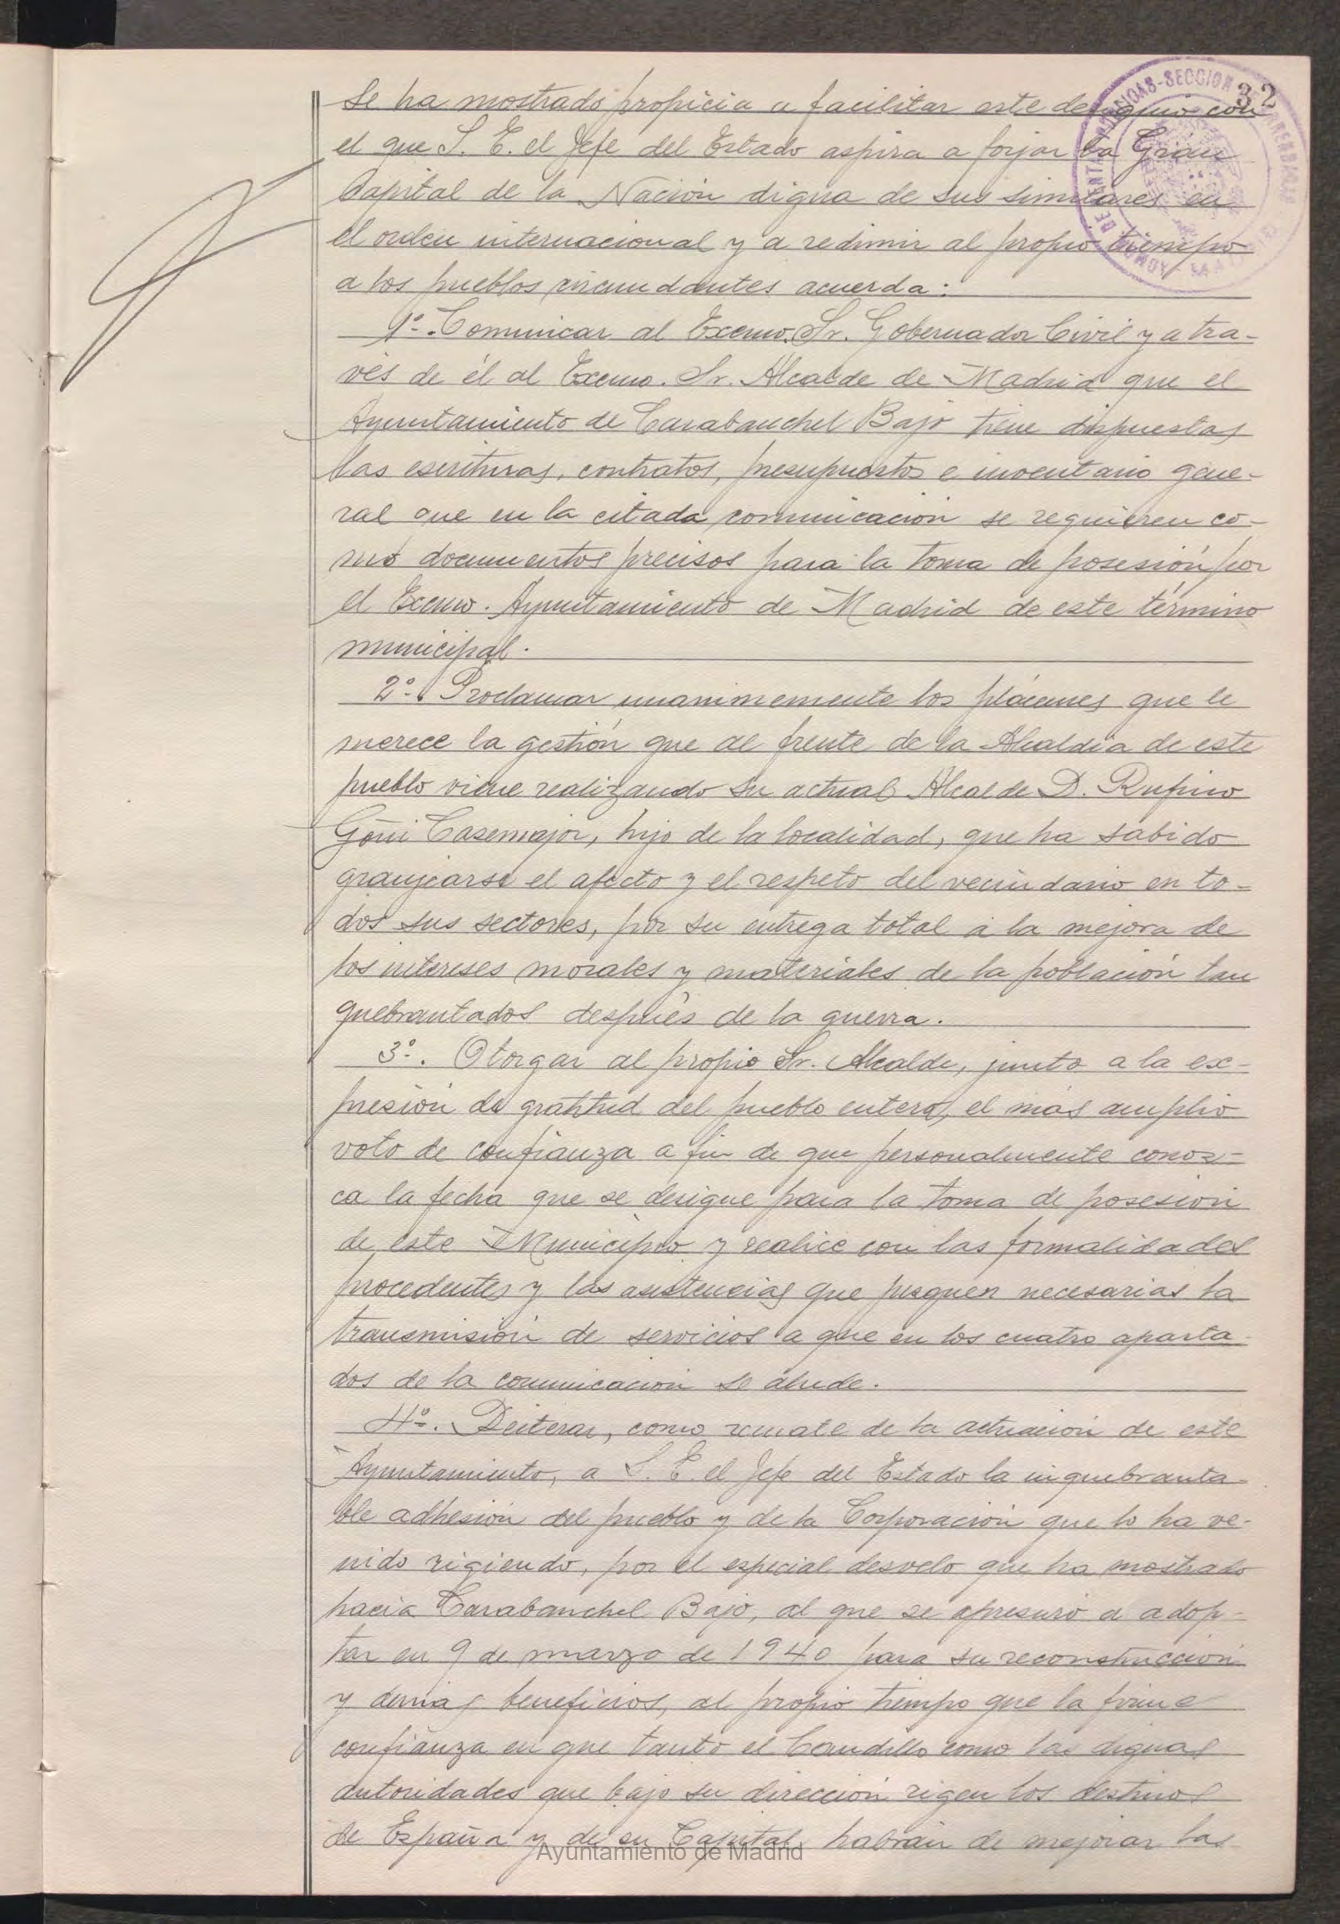 32
se ha mostrado propicia a facilitar este designio con
el que S. E. el Jefe del Estado aspira a forjar la Gran
Capital de la Nación digna de sus similares en
el orden internacional y a redimir al propio tiempo
a los pueblos circundantes acuerda:
1º. Comunicar al Excmo. Sr. Gobernador Civil y a tra-
vés de él al Excmo. Sr. Alcalde de Madrid que el
Ayuntamiento de Carabanchel Bajo tiene dispuestas
las escrituras, contratos, presupuestos e inventario gene-
ral que en la citada comunicación se requieren co-
mo documentos precisos para la toma de posesión por
el Excmo. Ayuntamiento de Madrid de este término
municipal.
2º. Proclamar unanimemente los plácemes que le
merece la gestión que al frente de la Alcaldía de este
pueblo viene realizando su actual Alcalde D. Rufino
Goñi Casemajor, hijo de la localidad, que ha sabido
granjearse el afecto y el respeto del vecindario en to-
dos sus sectores, por su entrega total a la mejora de
los intereses morales y materiales de la población tan
quebrantados después de la guerra.
3º. Otorgar al propio Sr. Alcalde, junto a la ex-
presión de gratitud del pueblo entero, el más amplio
voto de confianza a fin de que personalmente conoz-
ca la fecha que se designe para la toma de posesión
de este Municipio y realice con las formalidades
procedentes y las asistencias que juzguen necesarias la
transmisión de servicios a que en los cuatro aparta-
dos de la comunicación se alude.
4º. Reiterar, como remate de la actuación de este
Ayuntamiento, a S. E. el Jefe del Estado la inquebranta-
ble adhesión del pueblo y de la Corporación que lo ha ve-
nido rigiendo, por el especial desvelo que ha mostrado
hacia Carabanchel Bajo, al que se apresuró a adop-
tar en 9 de marzo de 1940 para su reconstrucción
y demás beneficios, al propio tiempo que la firme
confianza en que tanto el Caudillo como las dignas
autoridades que bajo su dirección rigen los destinos
de España y de su Capital, habrán de mejorar las
Ayuntamiento de Madrid